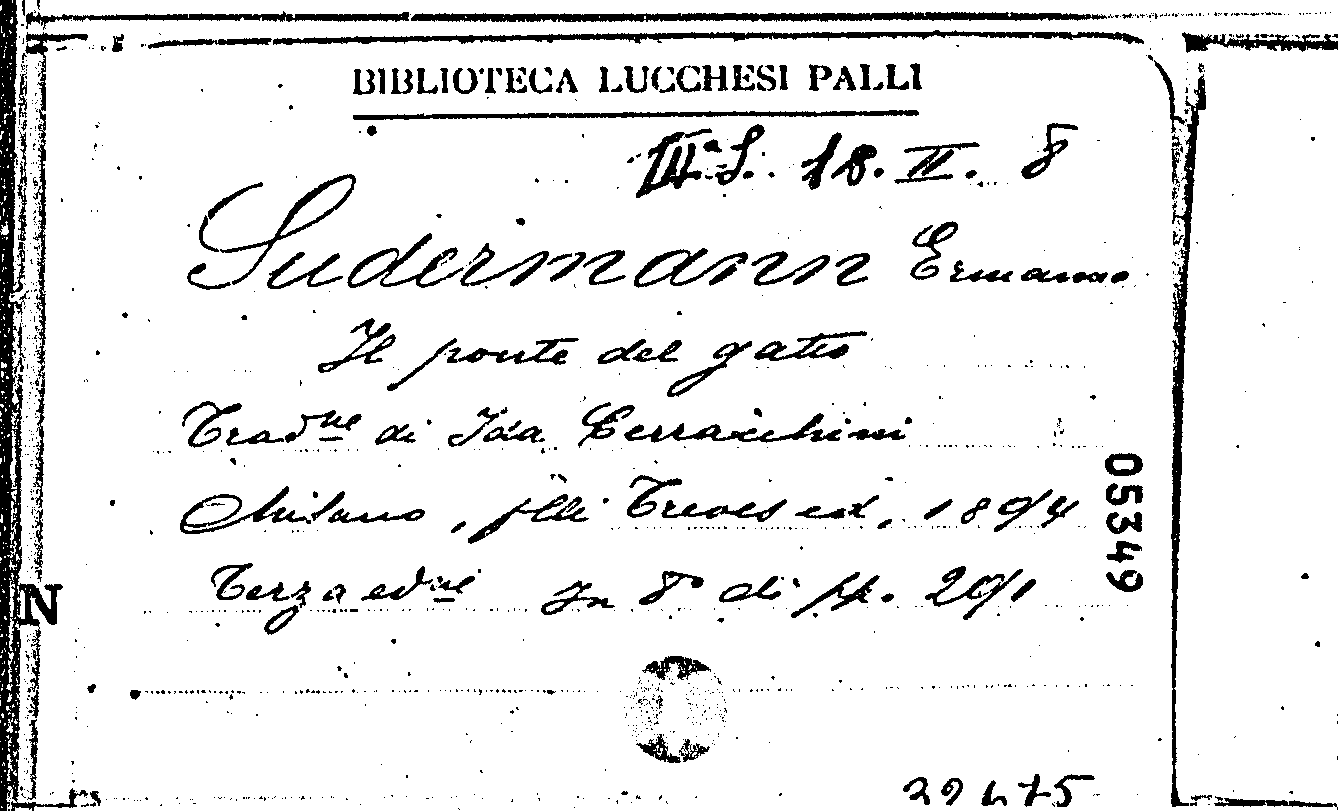 BIBLIOTECA LUCCHESI PALLI
IIIª S. 18. II. 8
Sudermann Ermanno
Il ponte del gatto
Trad.ne di Ida Cerracchini
Milano, flli Treves ed. 1894
Terza ed.ne In 8º di pp. 291
05349
N